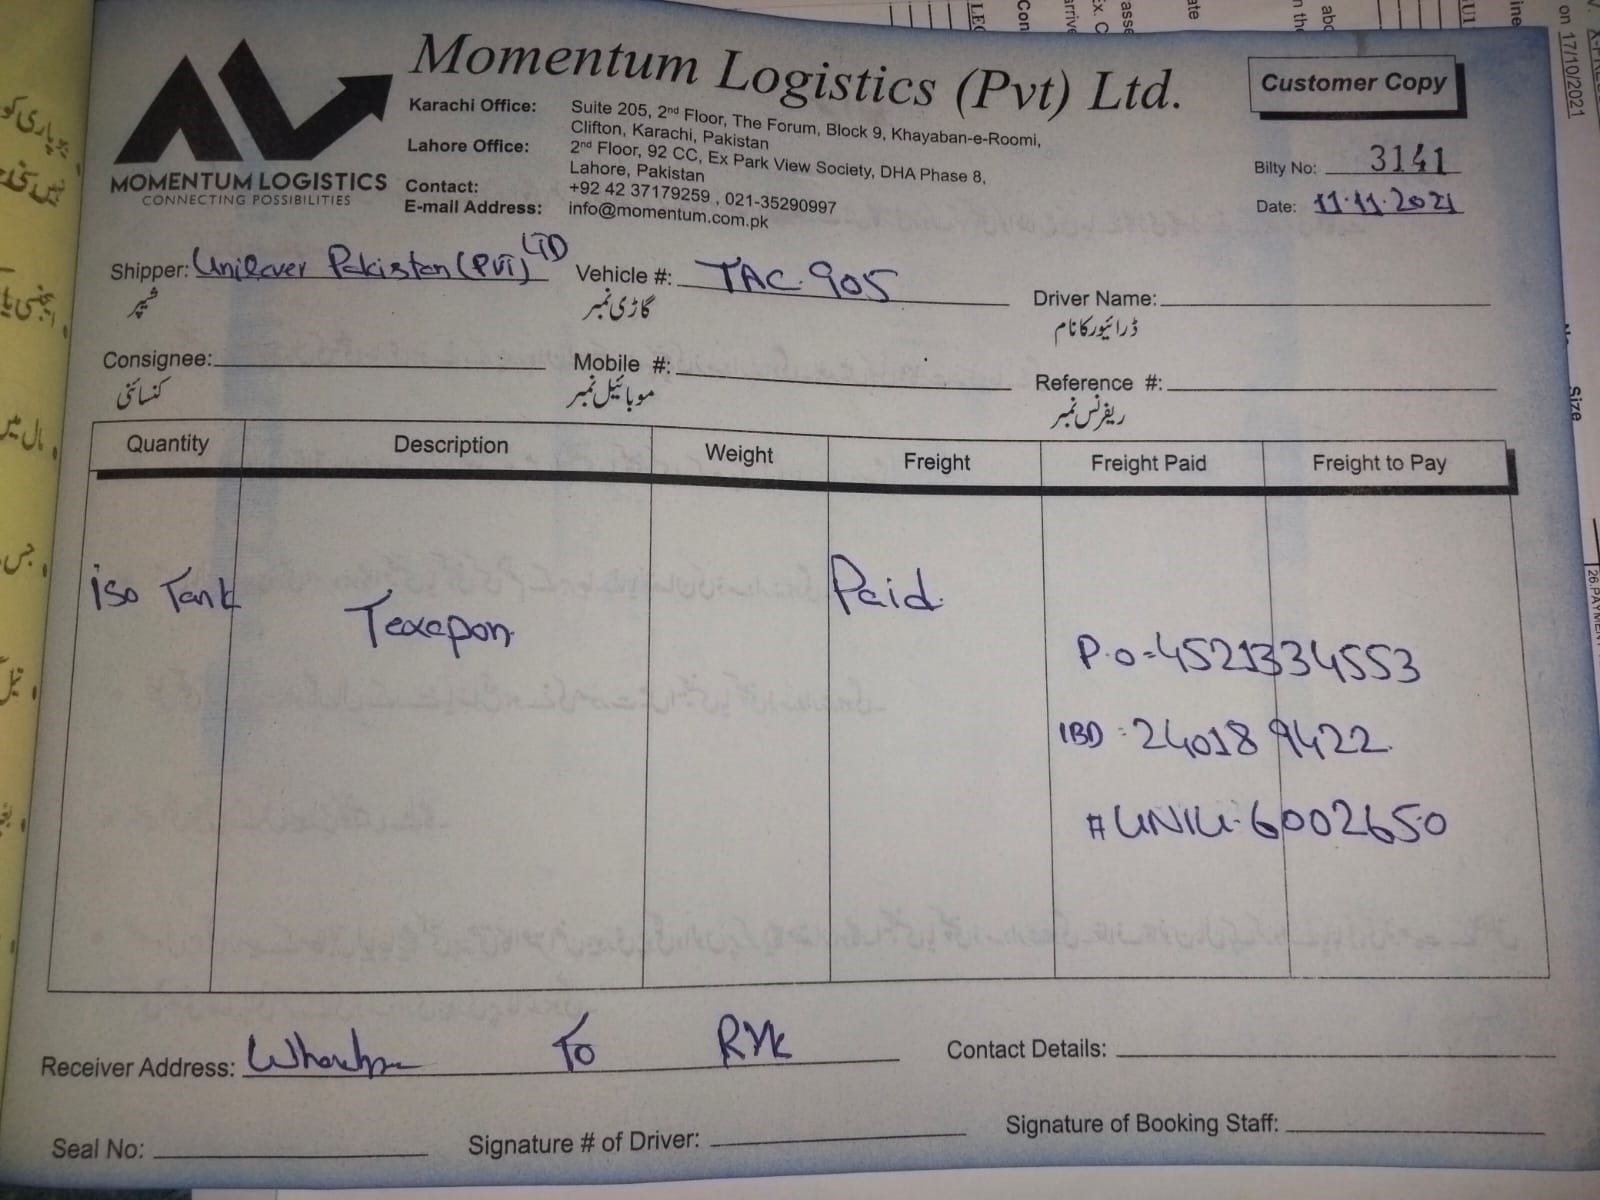 Momentum Logistics (Pvt) Ltd.
Customer Copy
MOMENTUM LOGISTICS
CONNECTING POSSIBILITIES
Karachi Office: Suite 205, 2nd Floor, The Forum, Block 9, Khayaban-e-Roomi,
Clifton, Karachi, Pakistan
Lahore Office: 2nd Floor, 92 CC, Ex Park View Society, DHA Phase 8,
Lahore, Pakistan
Contact: +92 42 37179259 , 021-35290997
E-mail Address: info@momentum.com.pk
Bilty No: 3141
Date: 11.11.2021
Shipper: Unilever Pakistan (PVT) LTD Vehicle #: TAC-905 Driver Name:
شپر گاڑی نمبر ڈرائیور کا نام
Consignee: Mobile #: Reference #:
کنسائنی موبائیل نمبر ریفرنس نمبر
Quantity Description Weight Freight Freight Paid Freight to Pay
iso Tank Texapon Paid
P.O=4521334553
IBD = 240189422
# UNIU-6002650
Receiver Address: To RYK Contact Details:
Seal No: Signature # of Driver: Signature of Booking Staff:
on 17/10/2021
Size